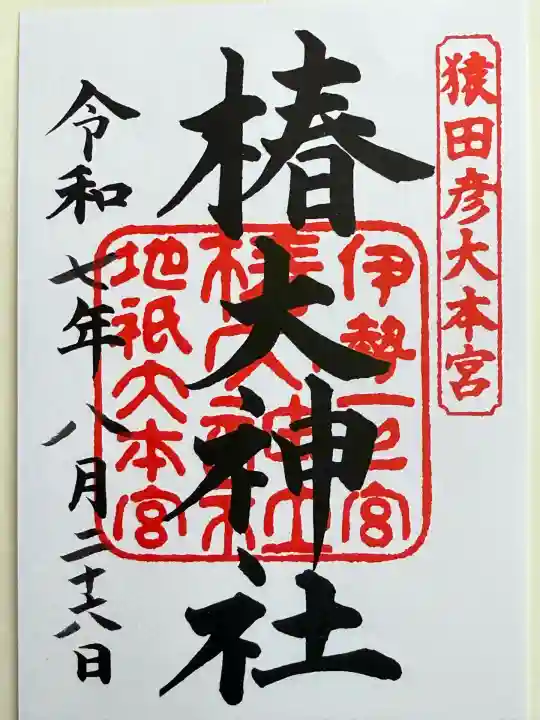 猿田彦大本宮
椿大神社
伊勢一之宮
椿大神社
地祇大本宮
令和七年八月二十六日